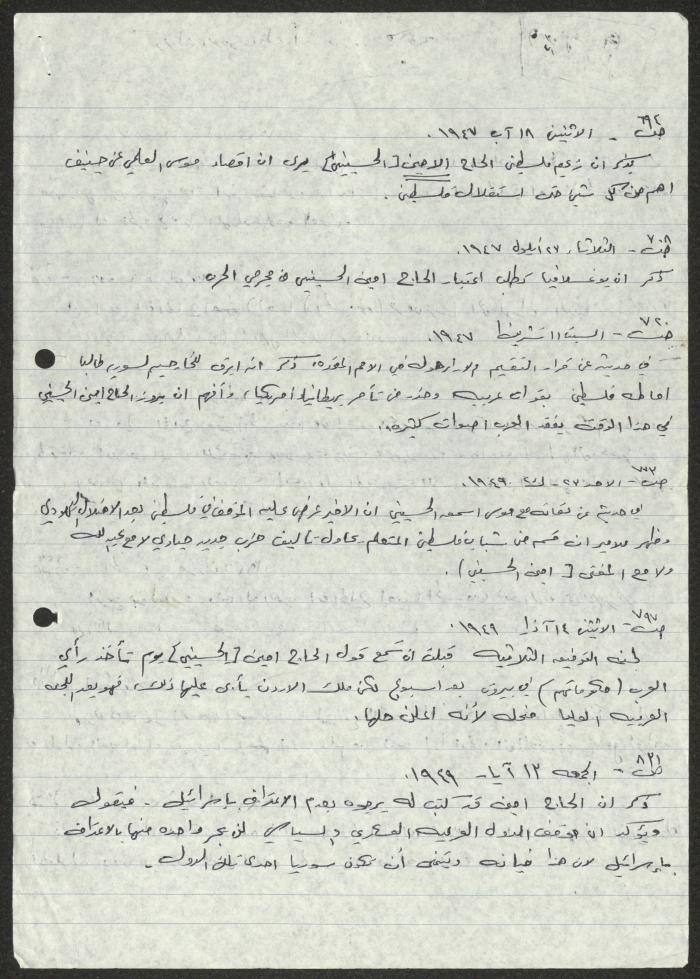 ص ٦٩٢ - الاثنين ١٨ آب ١٩٤٧.
يذكر ان زعيم فلسطين الحاج الامين [الحسيني] يرى ان اقصاء موسى العلمي عن جنيف
اهم من كل شيء حتى استقلال فلسطين.
ص ٧٠٨ - الثلاثاء ٢٧ أيلول ١٩٤٧.
ذكر ان يوغسلافيا تطلب اعتبار الحاج امين الحسيني من مجرمي الحرب.
ص ٧٢٠ - السبت ١ تشرين ١٩٤٧.
في حديثه عن قرار التقسيم في الامم المتحدة، ذكر انه ابرق للخارجية السورية طالبا
احاطة فلسطين بقوات عربية وحذر من تآمر بريطانيا وأمريكا، وأنهم ان بروز الحاج امين الحسيني
في هذا الوقت يفقد العرب اصوات كثيرة.
ص ٧٨٣ - الاحد ٢٧ - ١٩٤٩.
في حديثه عن لقائه مع موسى الحسيني ان الاخير عرض عليه الموقف في فلسطين بعد الاحتلال اليهودي
وظهر للامير ان قسم من شباب فلسطين المتعلم يحاول تأليف حزب جديد حيادي لا مع عبد الله
ولا مع المفتي [امين الحسيني].
ص ٧٩٧ - الاثنين ١٤ آذار ١٩٤٩.
لجنة التوفيق الثلاثية قبلت ان تسمع قول الحاج امين [الحسيني] يوم تأخذ رأي
العرب (حكوماتهم) في بيروت بعد اسبوع لكن ملك الاردن يأبى عليها ذلك، فهو يعد اللجنة
العربية العليا منحلة لأنه اعلن حلها.
ص ٨٣١ - الجمعة ١٣ آيار ١٩٤٩.
ذكر ان الحاج امين قد كتب له يرجوه بعدم الاعتراف باسرائيل - فيقول
ويؤكد ان موقف الدول العربية العسكري والسياسي لن يجر واحدة منها بالاعتراف
بإسرائيل لان هذا خيانة ويتمنى أن تكون سوريا احدى تلك الدول.